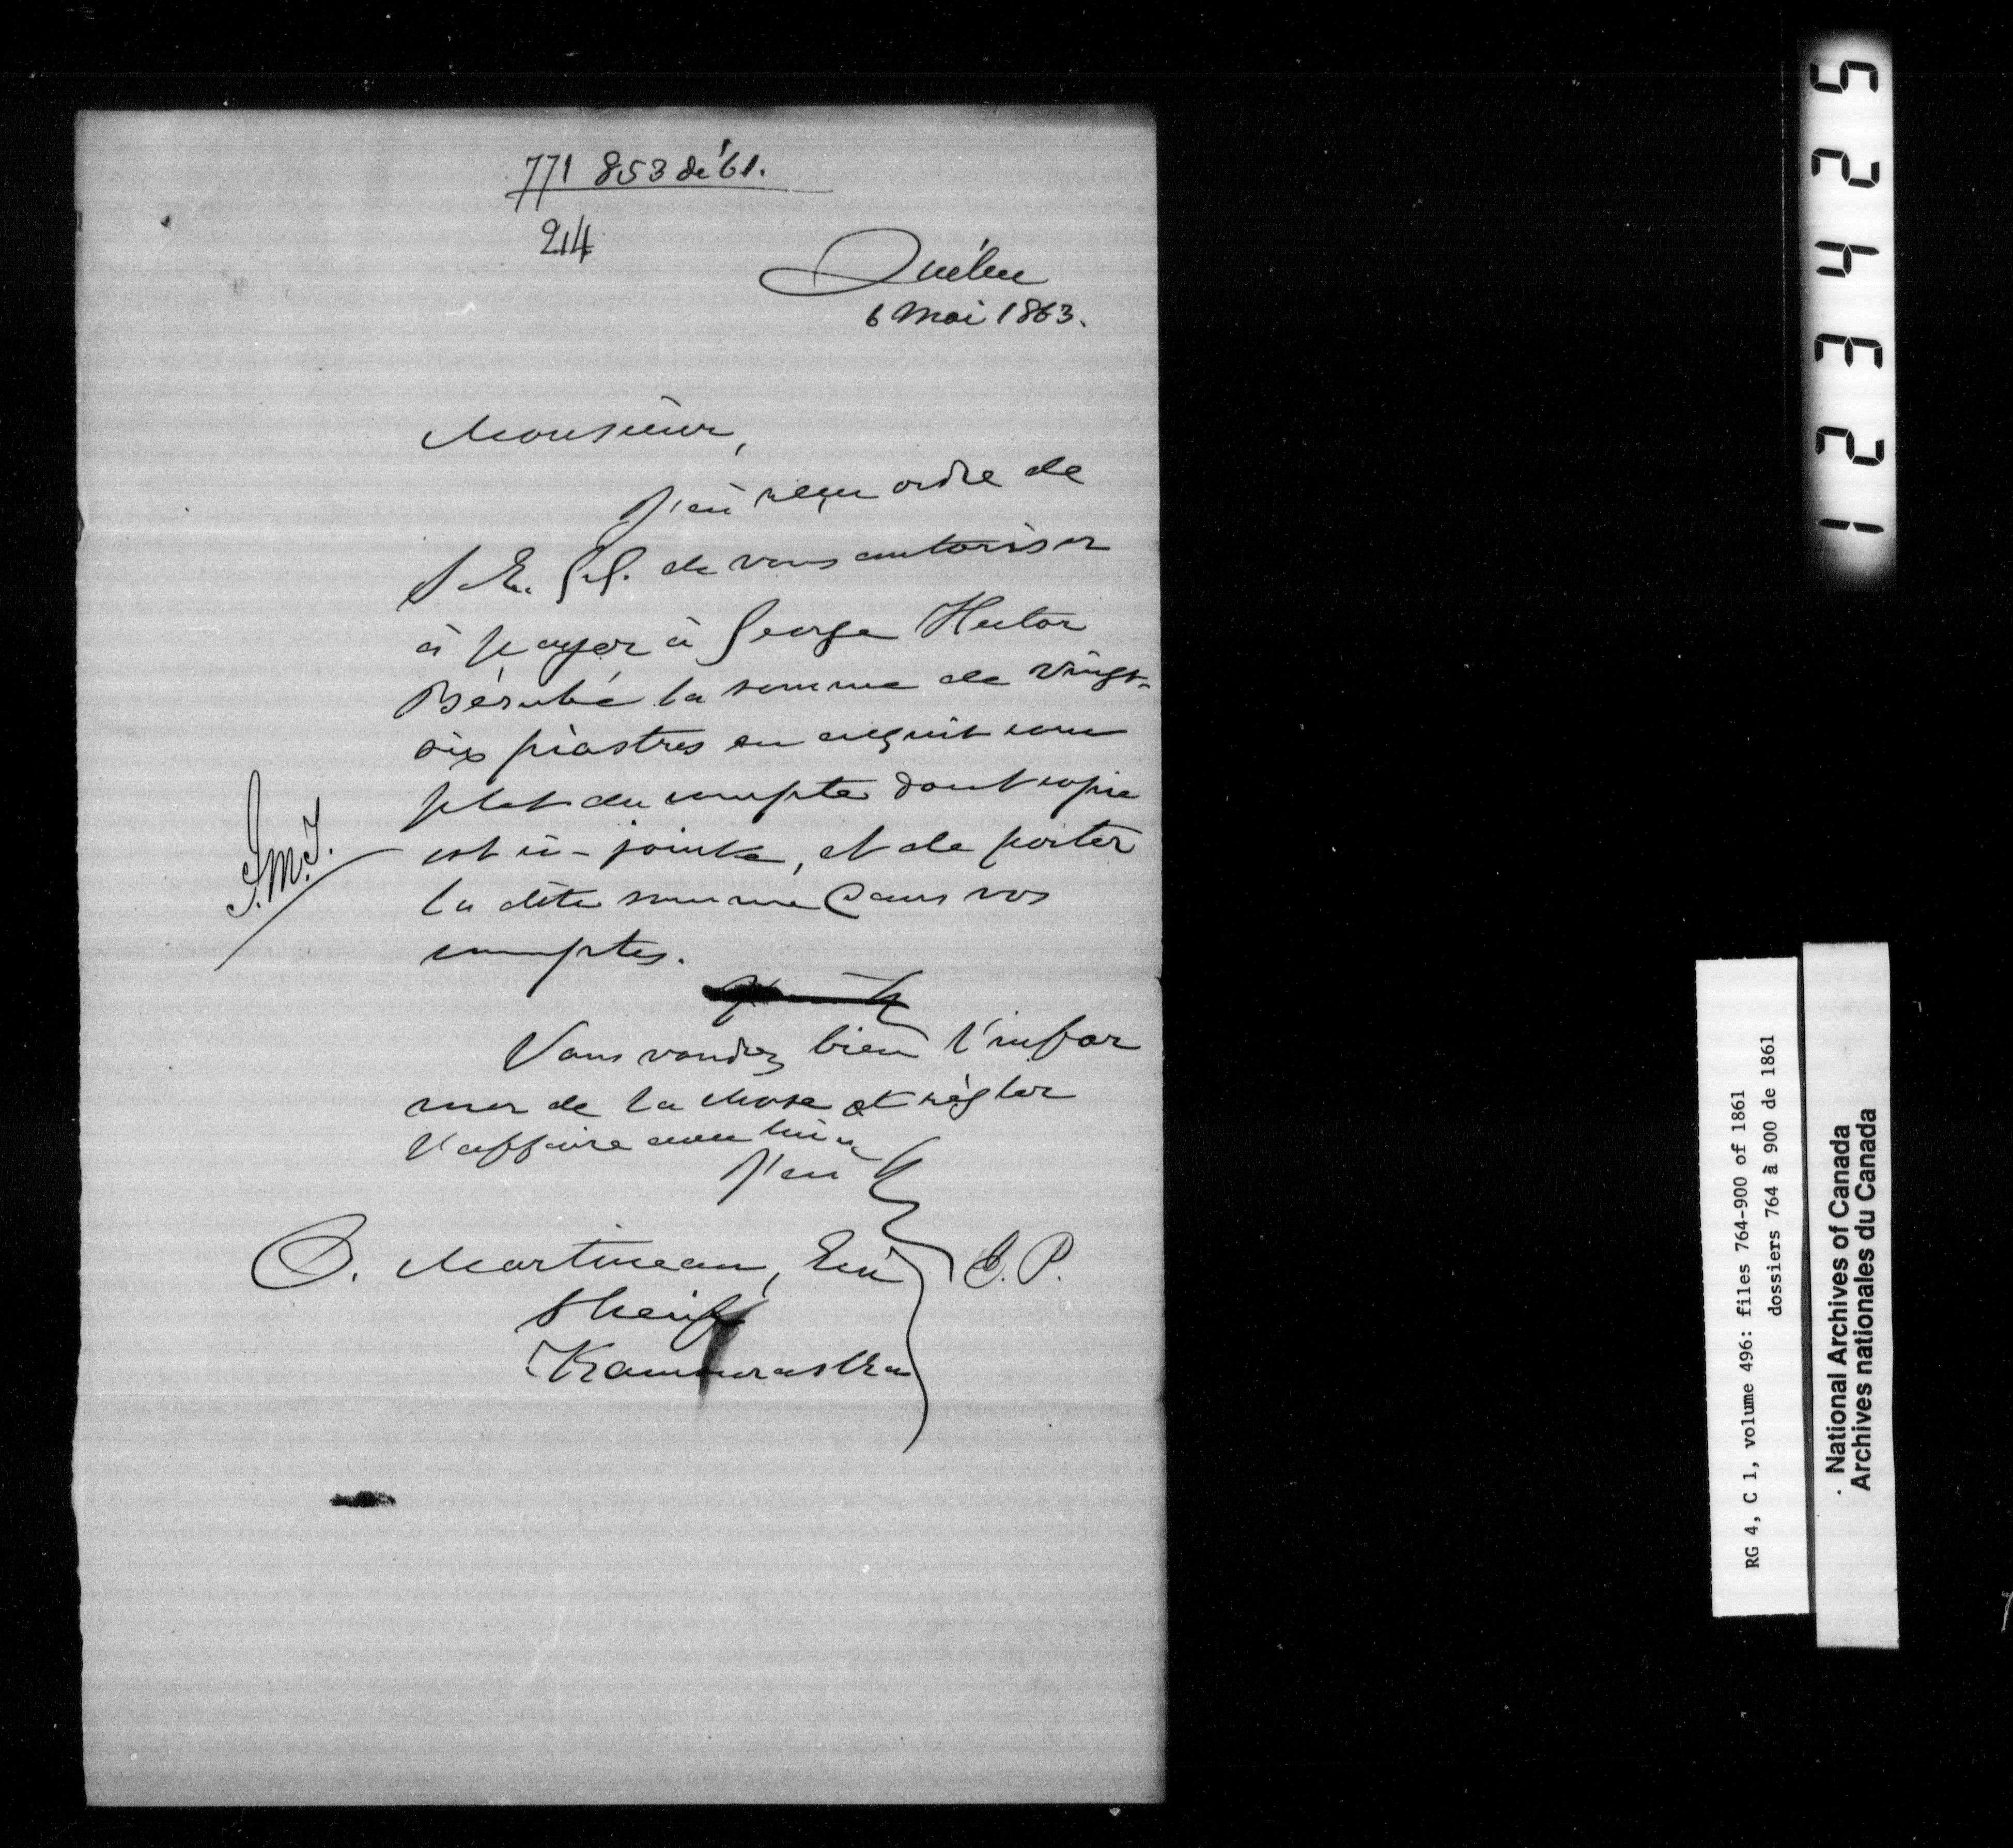 771 853 de '61.
214
Québec
6 Mai 1863.
Monsieur,
J'ai reçu ordre de
S. E. G. G. de vous autoriser
à payer à George Hector
Bérubé la somme de vingt-
six piastres en acquit com
plet du compte dont copie
est ci-jointe, et de porter
la dite somme dans vos
comptes.
Vous voudrez bien l'infor
mer de la chose et régler
l'affaire avec lui
J'ai
Martineau, Ecr
Sheriff
Kamouraska
123425
RG 4, C 1, volume 496: files 764-900 of 1861
dossiers 764 à 900 de 1861
National Archives of Canada
Archives nationales du Canada